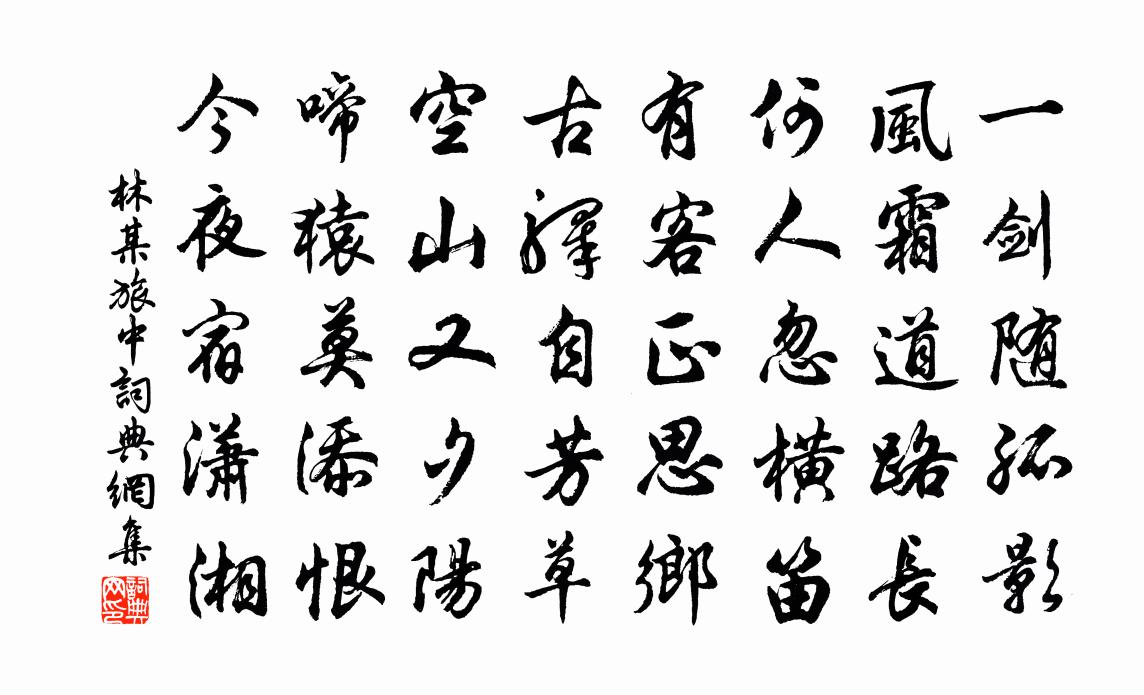 一剑随孤影
風霜道路長
何人忽橫笛
有客正思鄉
古驛自芳草
空山又夕陽
啼猿莫添恨
今夜宿瀟湘
林某旅中詞典網集
詞典
网印